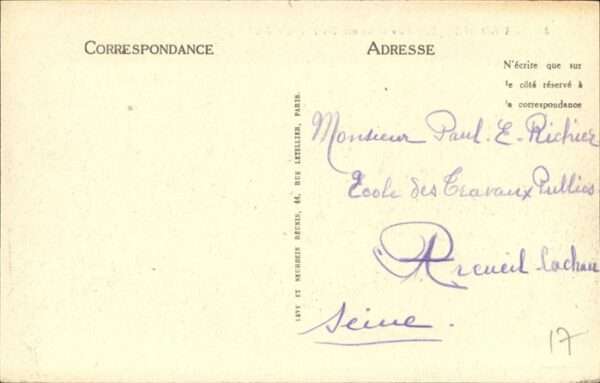 CORRESPONDANCE
ADRESSE
N'écrire que sur
le côté réservé à
la correspondance
LEVY ET NEURDEIN RÉUNIS, 44, RUE LETELLIER, PARIS.
Monsieur Paul. E. Richier
Ecole des Travaux Publics
Arcueil-Cachan
Seine.
17